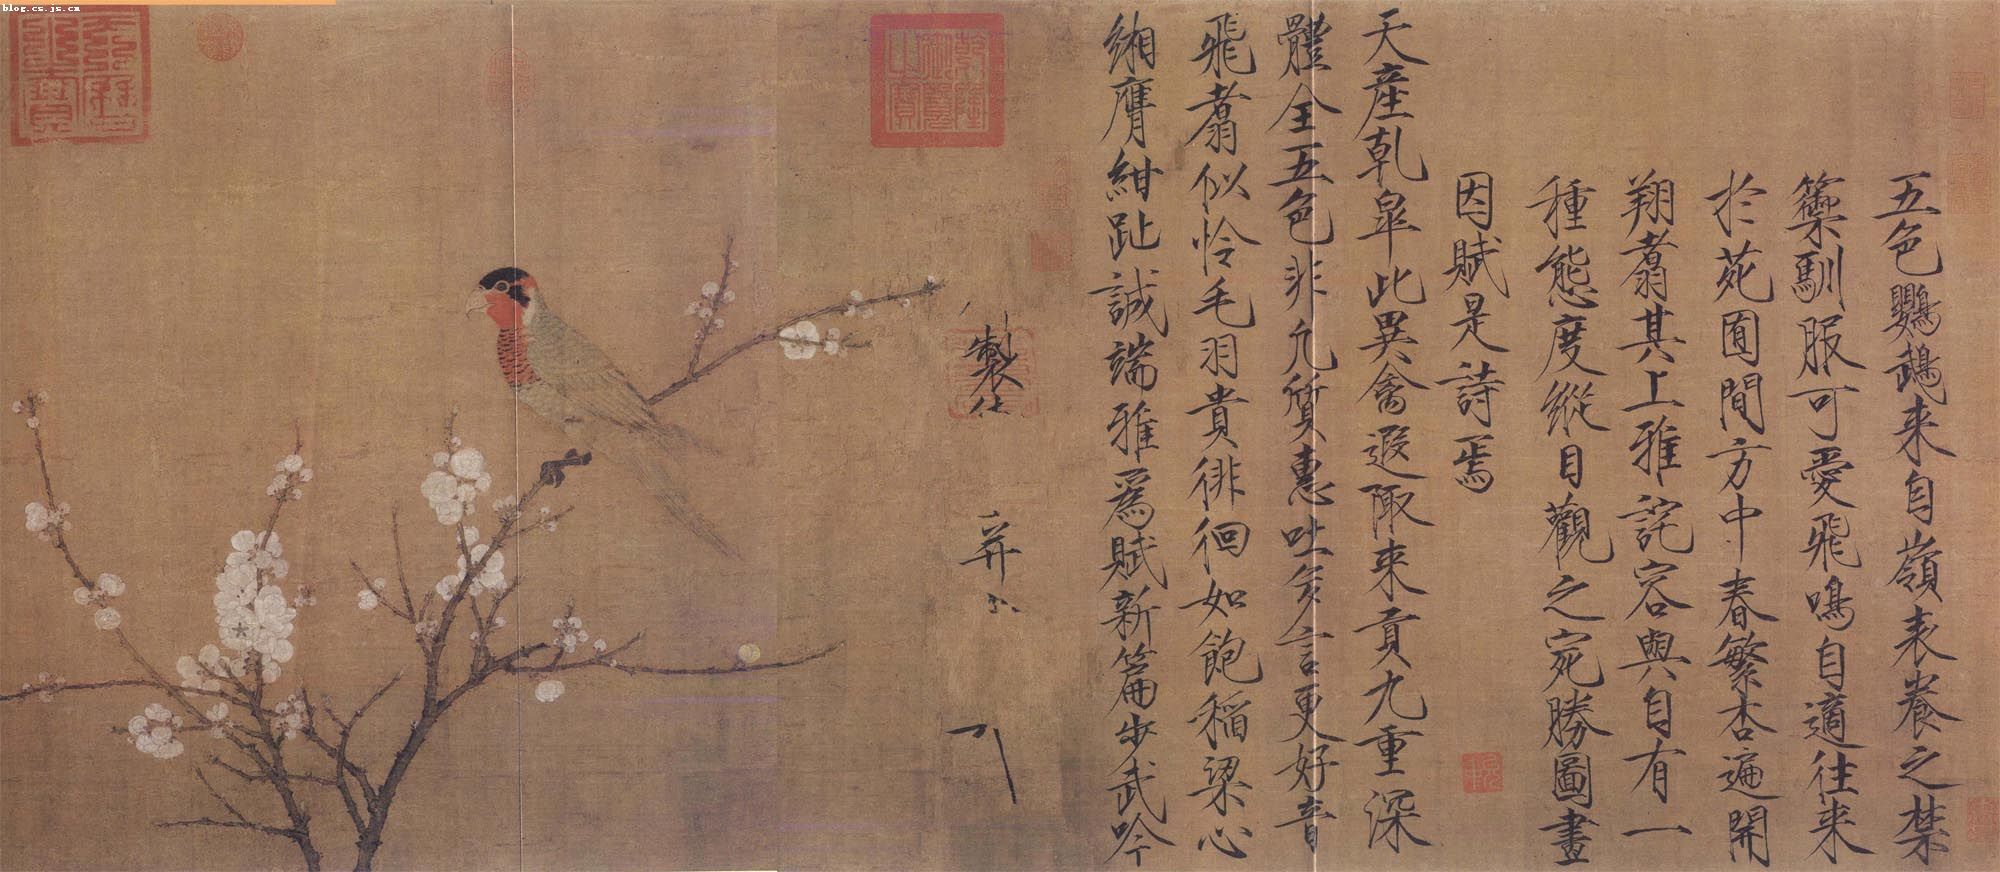 blog.cs.js.cn
五色鸚鵡来自嶺表養之禁
籞馴服可愛飛鳴自適往来
於苑囿間方中春繁杏遍開
翔翥其上雅詫容與自有一
種態度縱目觀之宛勝圖畫
因賦是詩焉
天産乹皐此異禽遐陬来貢九重深
體全五色非凡質惠吐多言更好音
飛翥似怜毛羽貴徘徊如飽稲粱心
緗膺紺趾誠端雅爲賦新篇步武吟
製
并
乾隆御覽之寶